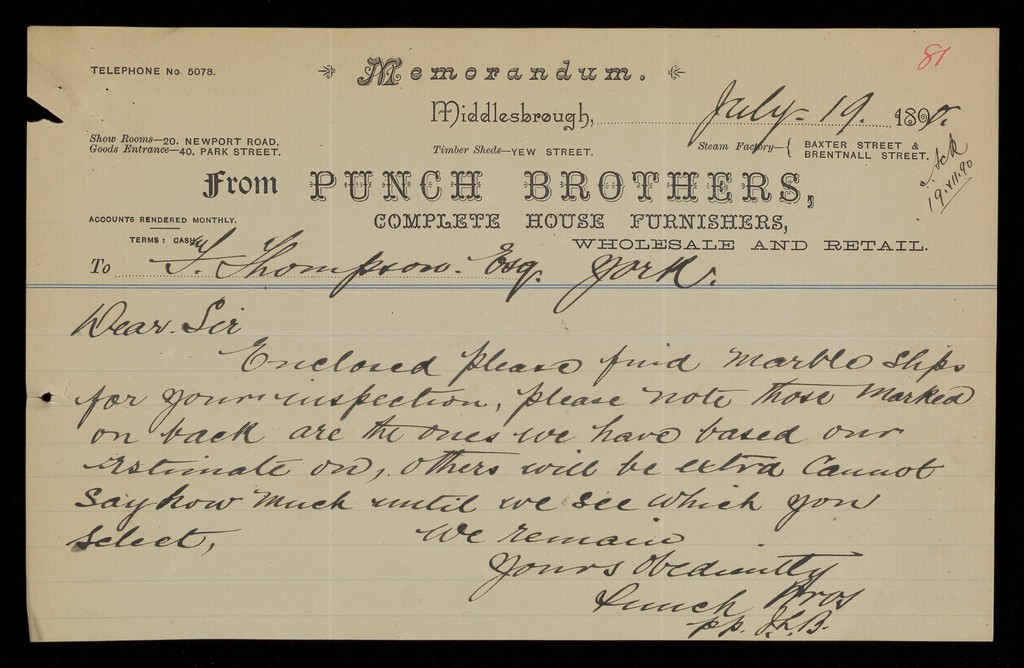 81
TELEPHONE No. 5078.
Memorandum.
Middlesbrough, July 19. 1890.
Show Rooms—20. NEWPORT ROAD.
Goods Entrance—40. PARK STREET.
Timber Sheds—YEW STREET.
Steam Factory—{ BAXTER STREET &
BRENTNALL STREET.
Ack
From PUNCH BROTHERS,
ACCOUNTS RENDERED MONTHLY.
COMPLETE HOUSE FURNISHERS,
TERMS: CASH
WHOLESALE AND RETAIL.
To Thompson. Esq. York.
Dear Sir
Enclosed please find Marble slips
for your inspection, please note those Marked
on back are the ones we have based our
Estimate on, others will be extra Cannot
Say how Much until we see which you
select,
We remain
Yours Obediently
Punch Bros
pp.